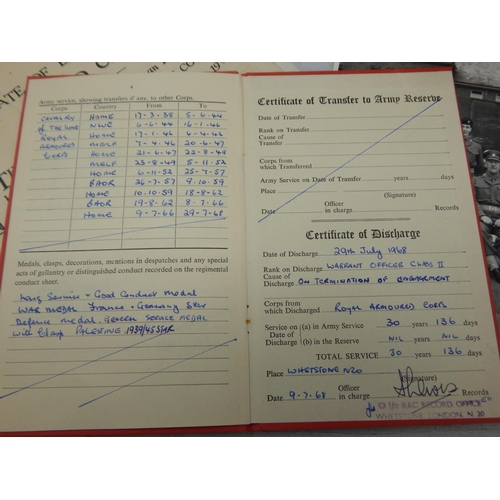 Army service, showing transfers if any, to other Corps.
Corps Country From To
CAVALRY HOME 17-3-38 5-6-44
OF THE LINE NWE 6-6-44 16-1-46
ROYAL HOME 17-1-46 6-4-46
ARMOURED MELF 7-4-46 20-6-47
CORPS HOME 21-6-47 22-8-49
MELF 23-8-49 5-11-52
HOME 6-11-52 25-7-57
BAOR 26-7-57 9-10-59
HOME 10-10-59 18-8-62
BAOR 19-8-62 8-7-66
HOME 9-7-66 29-7-68
Medals, clasps, decorations, mentions in despatches and any special
acts of gallantry or distinguished conduct recorded on the regimental
conduct sheer.
Long Service + Good Conduct medal
WAR MEDAL France + Germany Star
Defence medal. GENERAL SERVICE MEDAL
with Clasp PALESTINE 1939/45 STAR
Certificate of Transfer to Army Reserve
Date of Transfer
Rank on Transfer
Cause of
Transfer
Corps from
which Transferred
Army Service on Date of Transfer years days
Place (Signature)
Date Officer in charge Records
Certificate of Discharge
Date of Discharge 29th July 1968
Rank on Discharge WARRANT OFFICER CLASS II
Cause of
Discharge ON TERMINATION OF ENGAGEMENT
Corps from
which Discharged ROYAL ARMOURED CORPS
Service on (a) in Army Service 30 years 136 days
Date of
Discharge (b) in the Reserve NIL years NIL days
TOTAL SERVICE 30 years 136 days
Place WHETSTONE N20
(Signature)
Date 9-7-68 Officer in charge
O i/c RAC RECORD OFFICE
WHETSTONE LONDON N 20